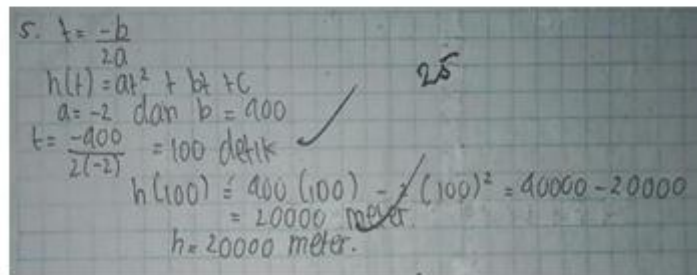 5. t = -b/2a
h(t) = at² + bt + c
a = -2 dan b = 400
t = -400/2(-2) = 100 detik
25
h(100) = 400(100) - 2(100)² = 40000 - 20000
= 20000 meter.
h = 20000 meter.